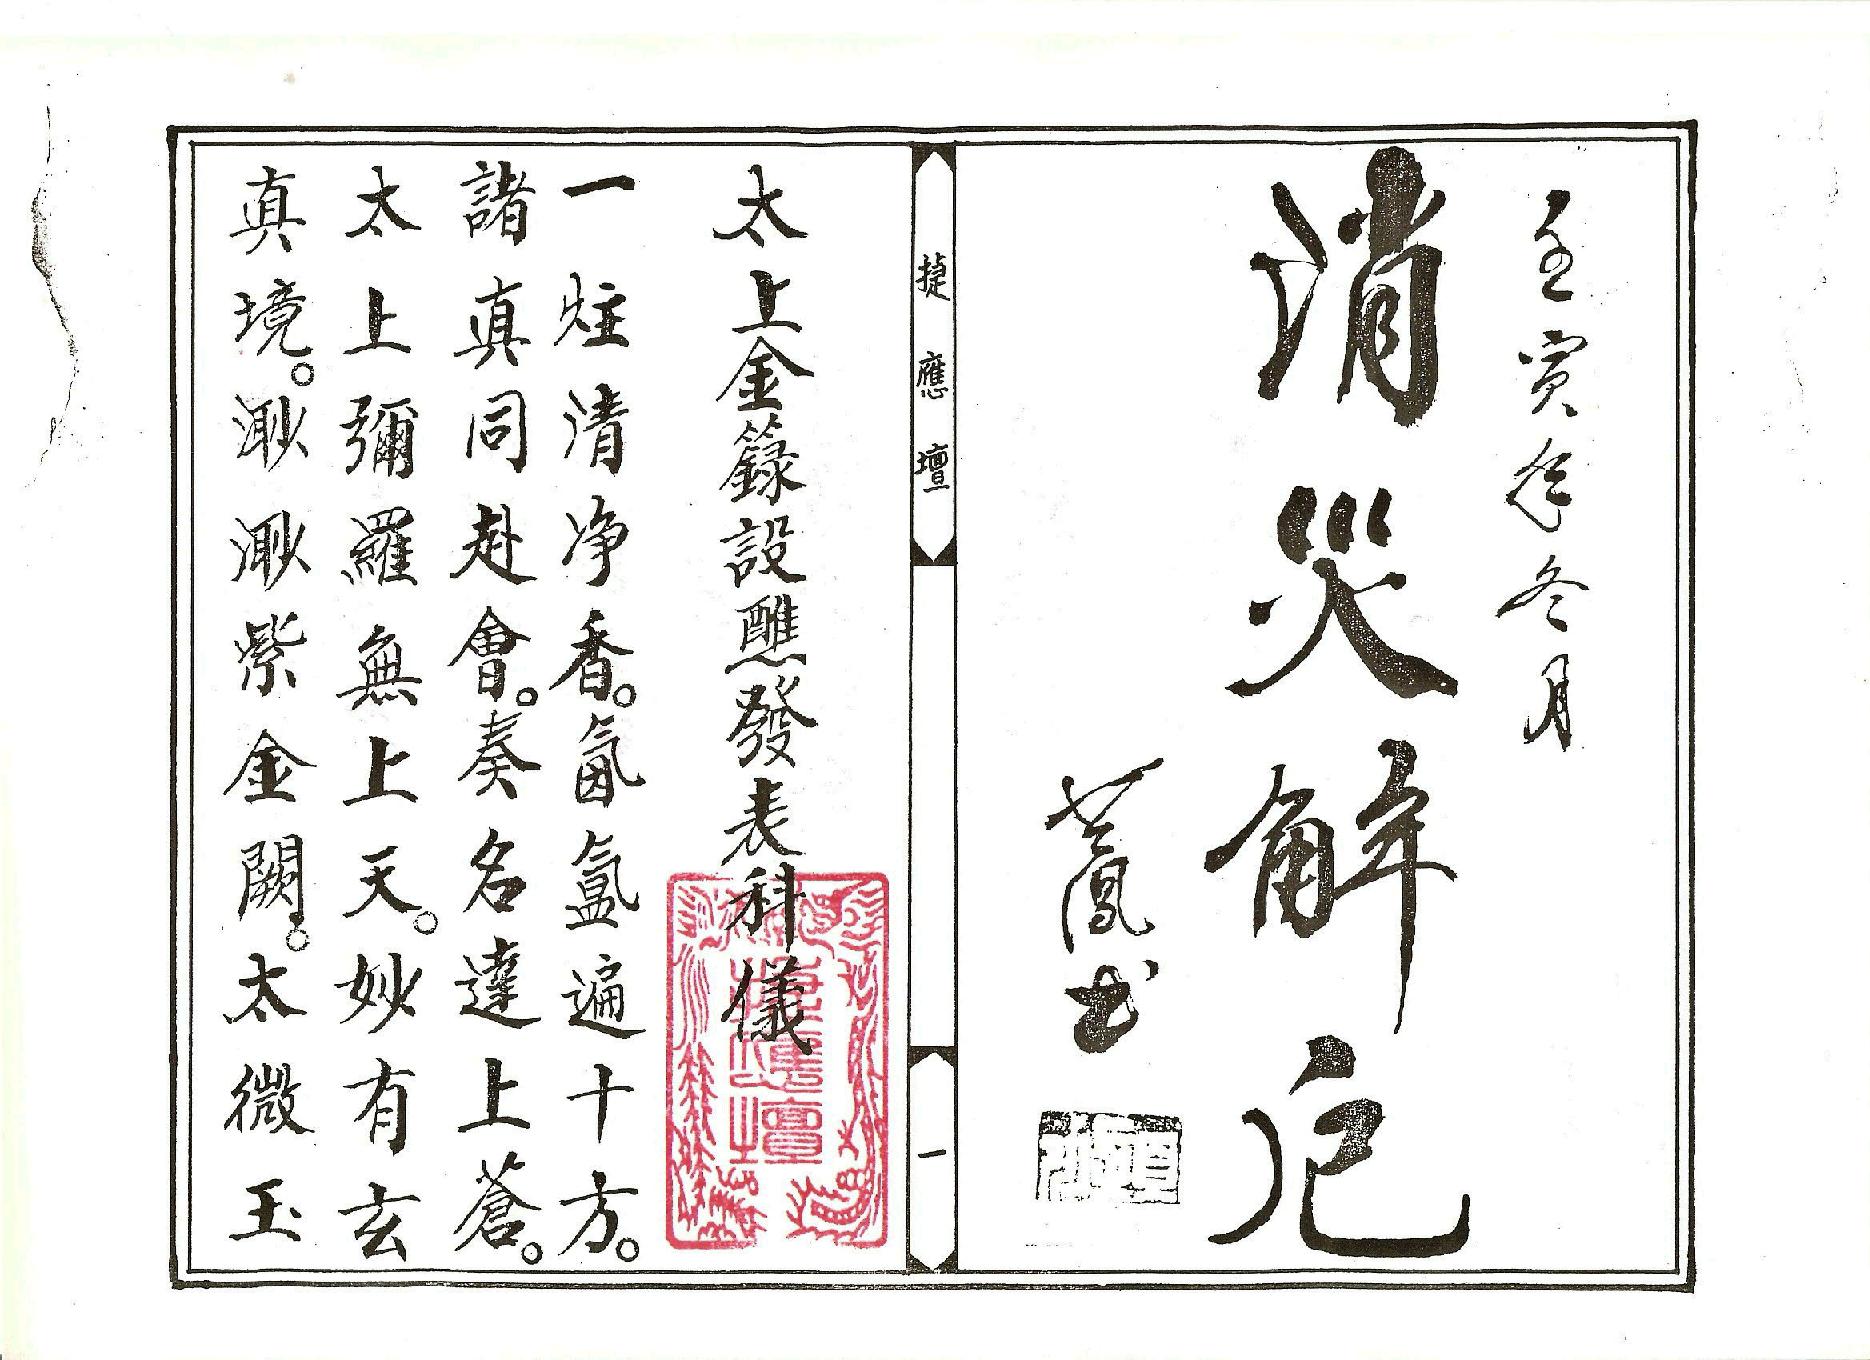 壬寅年冬月
消災解厄
鳳书
捷應壇
一
太上金籙設醮發表科儀
一炷清净香。氤氳遍十方。
諸真同赴會。奏名達上蒼。
太上彌羅無上天。妙有玄
真境。渺渺紫金闕。太微玉